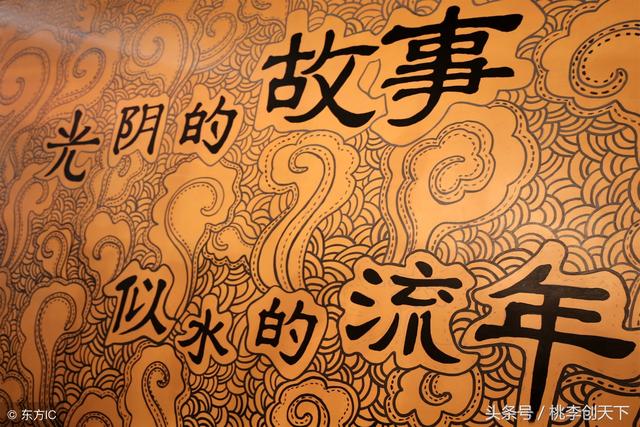 光阴的故事
似水的流年
© 东方IC
头条号 / 桃李创天下